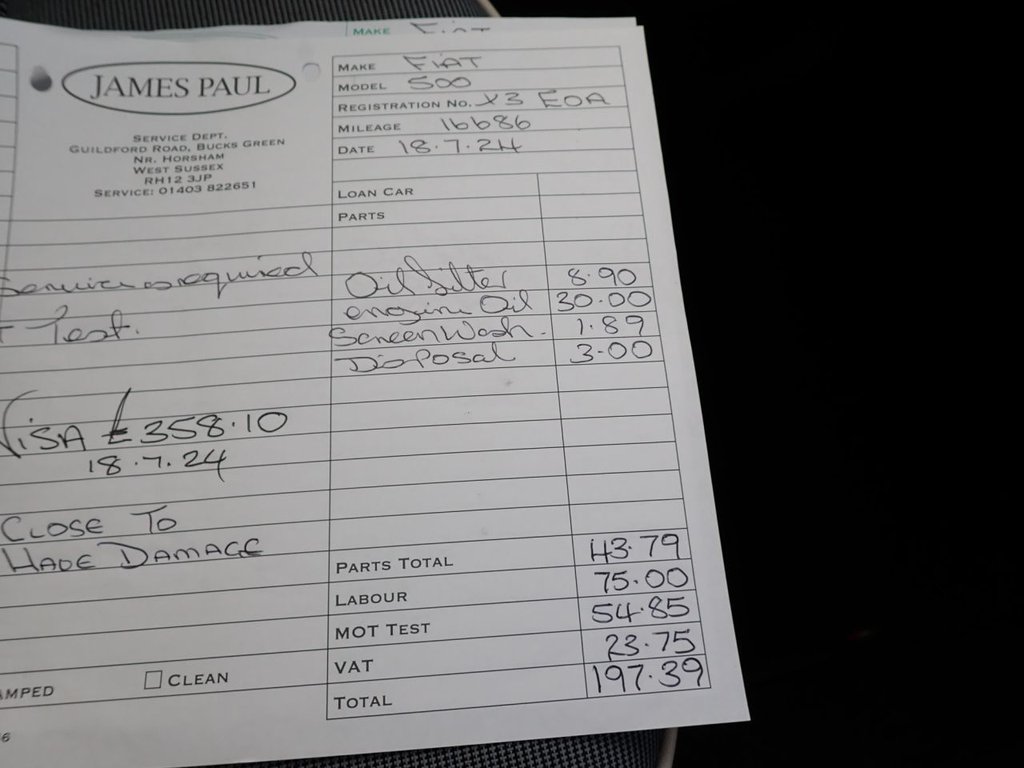 MAKE Fiat
JAMES PAUL
SERVICE DEPT.
GUILDFORD ROAD, BUCKS GREEN
NR. HORSHAM
WEST SUSSEX
RH12 3JP
SERVICE: 01403 822651
MAKE FIAT
MODEL 500
REGISTRATION NO. X3 EOA
MILEAGE 16686
DATE 18.7.24
LOAN CAR
PARTS
Service as required
T Test.
Oil filter 8.90
engine Oil 30.00
Screen Wash. 1.89
Disposal 3.00
VISA £358.10
18.7.24
CLOSE TO
HAVE DAMAGE
PARTS TOTAL 43.79
LABOUR 75.00
MOT TEST 54.85
VAT 23.75
TOTAL 197.39
AMPED
CLEAN
6